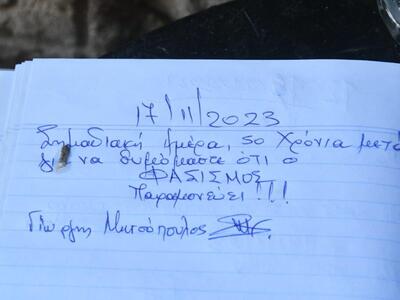 17/11/2023
Σημαδιακή μέρα, 50 χρόνια μετά
για να θυμόμαστε ότι ο
ΦΑΣΙΣΜΟΣ
Παραμονεύει!!!
Γιώργης Μητσόπουλος